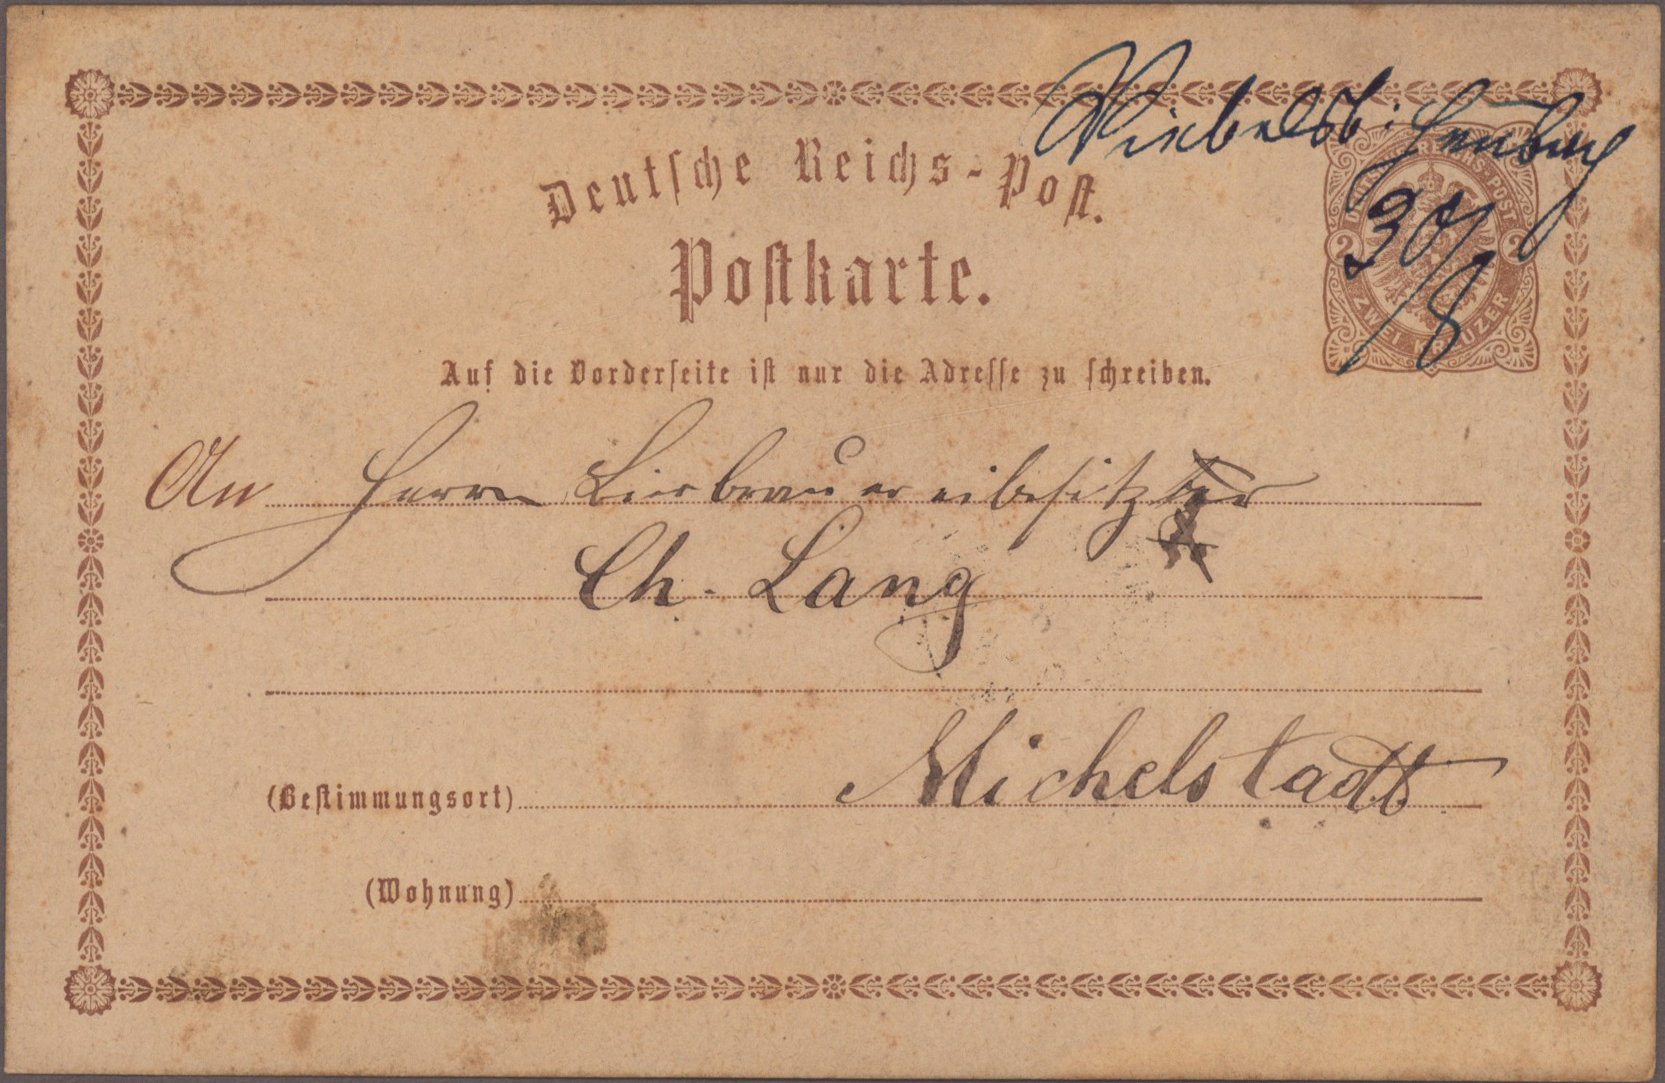 Deutsche Reichs-Post.
Postkarte.
30/8
2 2
ZWEI KREUZER
Auf die Vorderseite ist nur die Adresse zu schreiben.
An Herrn Bierbrauereibesitzer
Ch. Lang
(Bestimmungsort) Michelstadt
(Wohnung)